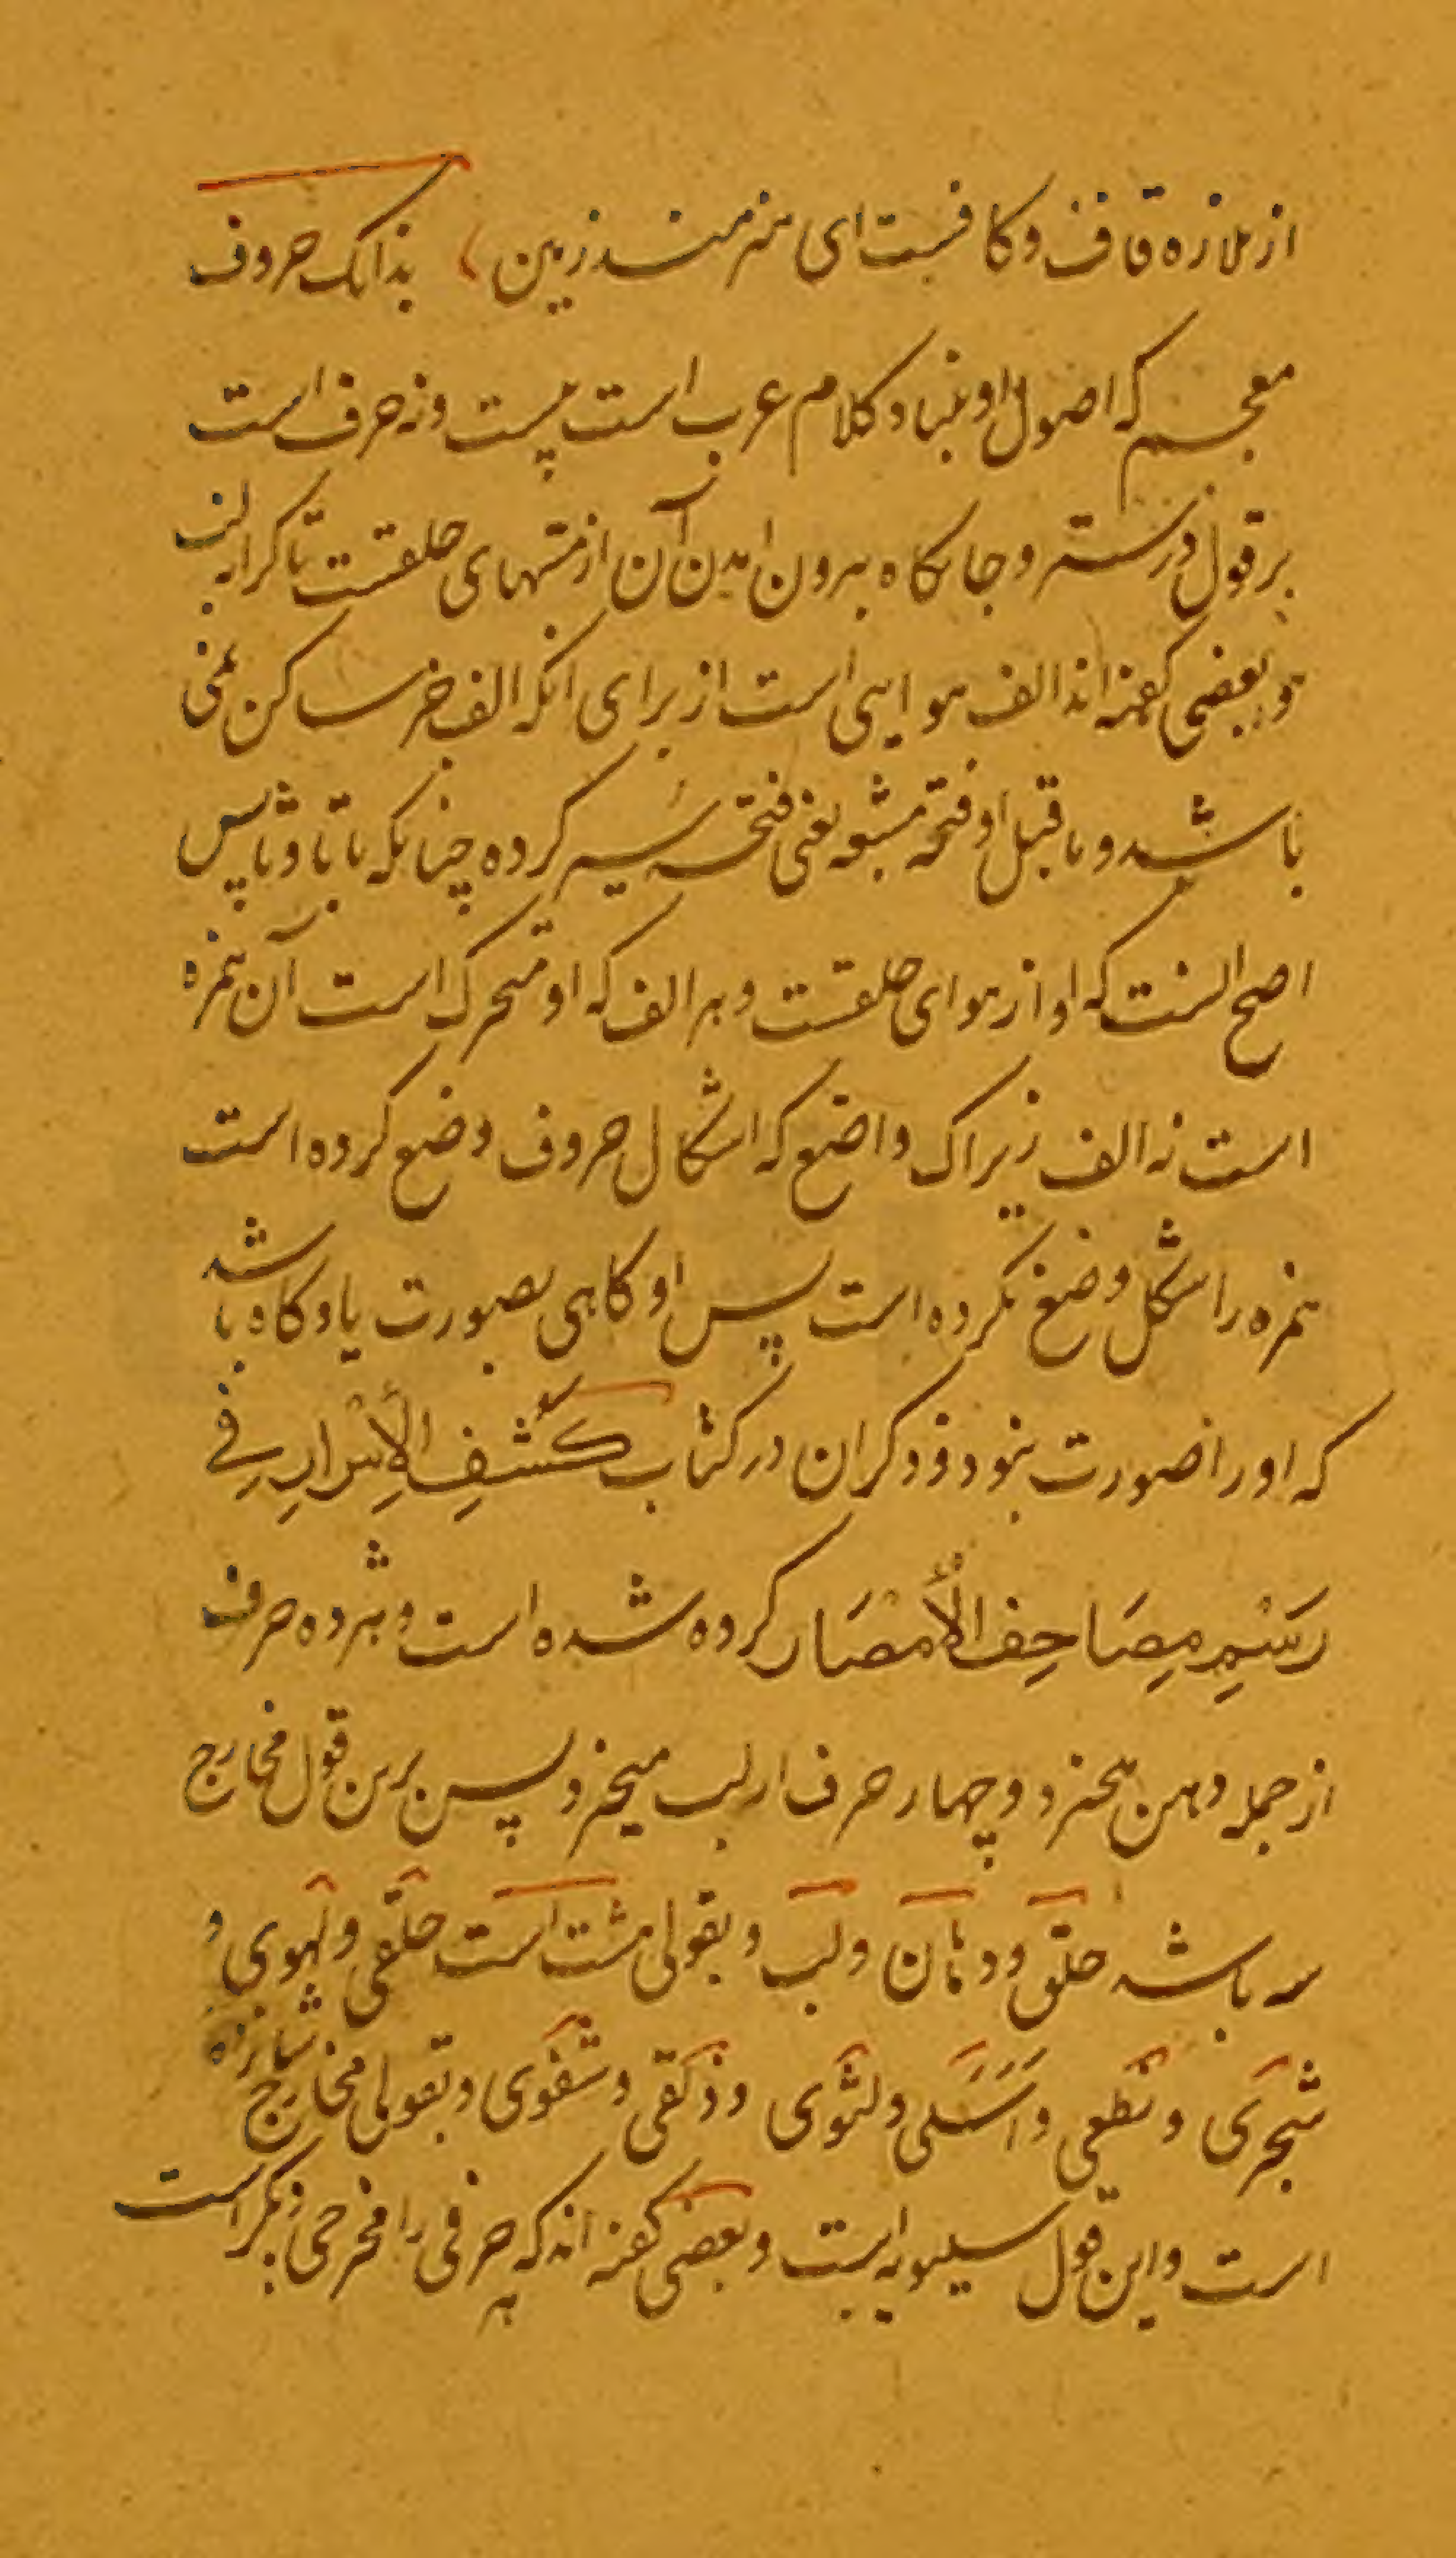 از ملازه قاف و کافست ای هنرمند زمین بدانک حروف
معجم که اصول او بنیاد کلام عرب است بیست و نه حرف است
بر قول درست و جایگاه بیرون امدن آن از منتهای حلقست تا کرانه لب
و بعضی گفته اند الف هوایی است از برای انکه الف جز ساکن نمی
باشد و ماقبل او فتحه مشبعه یعنی فتحه سیر کرده چنانکه با تا و ثا پس
اصح انست که او از هوای حلقست و هر الف که او متحرک است آن همزه
است نه الف زیراک واضع که اشکال حروف وضع کرده است
همزه را شکل وضع نکرده است پس او کاهی بصورت یا و کاه باشد
که او را صورت نبود و ذکر ان در کتاب كَشْفِ الأَسْرَارِ فِي
رَسْمِ مصَاحِفِ الأَمْصَار کرده شده است و هژده حرف
از جمله دهن میخیزد و چهار حرف از لب میخیزد پس برین قول مخارج
سه باشد حلق و دهان و لب و بقولی هشت است حلقی و لهوی و
شجری و نطعی و اَسَلی و لثوی و ذلقی و شفوی و بقولی مخارج شانزده
است و این قول سیبویه است و بعضی گفته اند که هر حرفی را مخرجی دیگر است